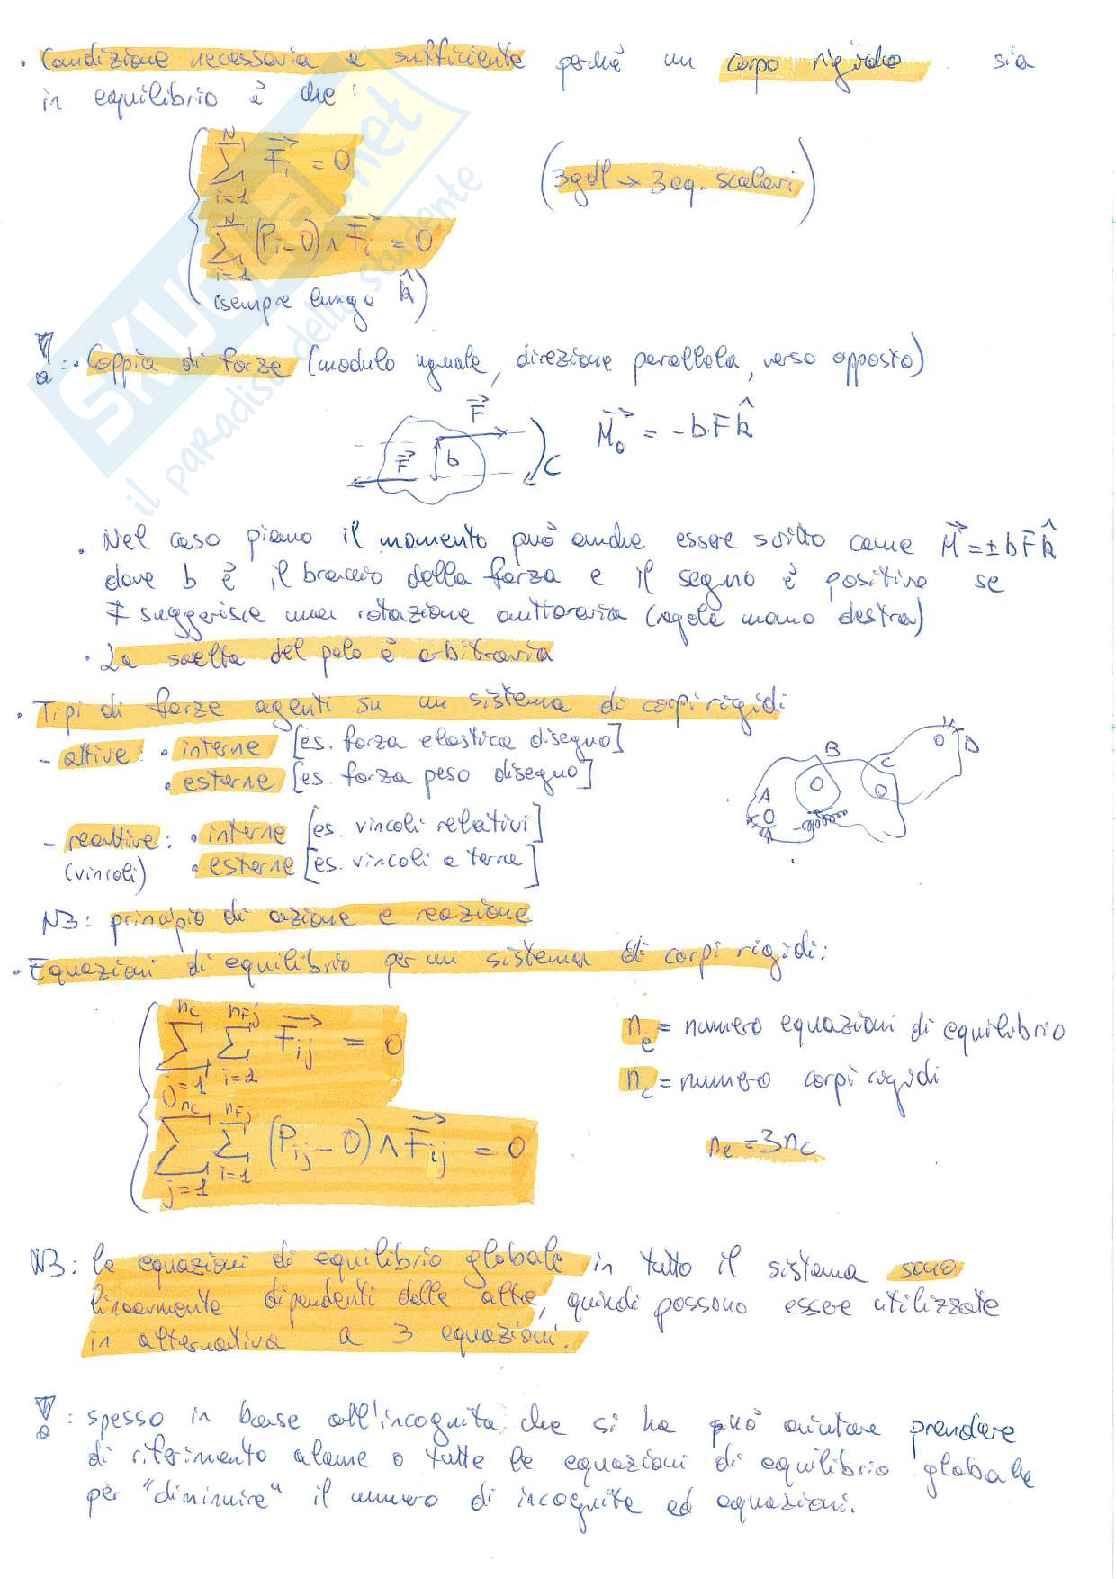 · Condizione necessaria e sufficiente perché un corpo rigido sia
in equilibrio è che:
N
∑ F⃗i = 0
i=1
(3gdl → 3 eq. scalari)
N
∑ (Pi-O) ∧ F⃗i = 0
i=1
(sempre lungo k̂)
: · Coppia di forze (modulo uguale, direzione parallela, verso opposto)
F⃗
F⃗ b C
M⃗o = -bFk̂
· Nel caso piano il momento può anche essere scritto come M⃗=±bFk̂
dove b è il braccio della forza e il segno è positivo se
F suggerisce una rotazione antioraria (regola mano destra)
· La scelta del polo è arbitraria
· Tipi di forze agenti su un sistema di corpi rigidi:
- attive: · interne [es. forza elastica disegno]
· esterne [es. forza peso disegno]
A B C D
- reattive: · interne [es. vincoli relativi]
(vincoli) · esterne [es. vincoli a terra]
NB: principio di azione e reazione
· Equazioni di equilibrio per un sistema di corpi rigidi:
nc nFj
∑ ∑ F⃗ij = 0
j=1 i=1
ne = numero equazioni di equilibrio
nc = numero corpi rigidi
nc nFj
∑ ∑ (Pij-O) ∧ F⃗ij = 0
j=1 i=1
ne=3nc
NB: le equazioni di equilibrio globale in tutto il sistema sono
linearmente dipendenti dalle altre, quindi possono essere utilizzate
in alternativa a 3 equazioni.
: spesso in base all'incognita che si ha può aiutare prendere
di riferimento alcune o tutte le equazioni di equilibrio globale
per "diminuire" il numero di incognite ed equazioni.
SKUOLA.net
il paradiso dello studente